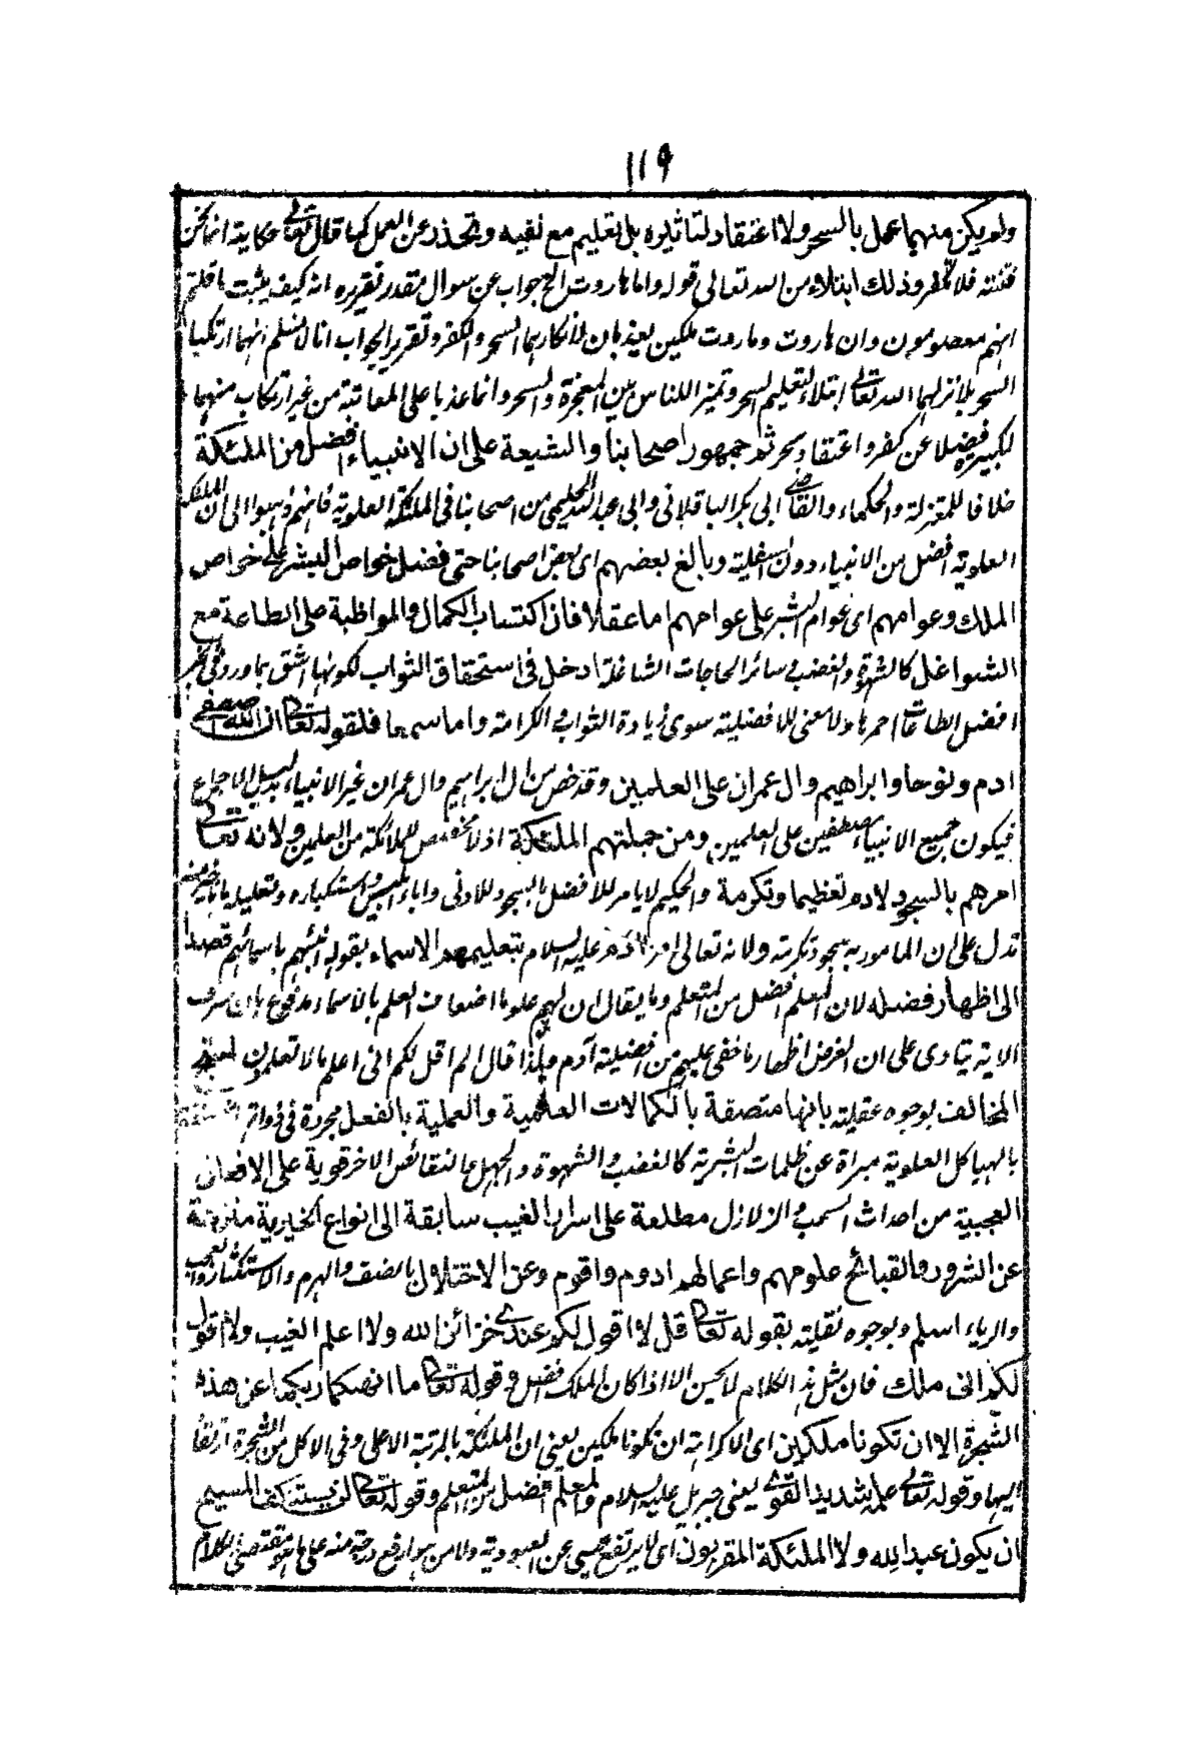 ١١٩
ولم يكن منهما عمل بالسحر ولا اعتقاد لتاثيره بل تعليم مع نفيه وتحذير عن العمل كما قال تعالى حكاية انما نحن
فتنة فلا تكفر وذلك ابتلاء من الله تعالى قوله واما هاروت الخ جواب عن سوال مقدر تقريره انه كيف يثبت ما قلتم
انهم معصومون وان هاروت وماروت ملكين يعذبان لانكارهما السحر والكفر وتقرير الجواب انا لا نسلم انهما ارتكبا
السحر بل انزلهما الله تعالى ابتلاء لتعليم السحر وتميز اللناس بين المعجزة والسحر وانما عذبا على المعاتبة من غير ارتكاب منهما
لكبيرة فضلا عن كفر واعتقاد سحر ثم جمهور اصحابنا والشيعة على ان الانبياء افضل من الملئكة
خلافا للمعتزلة والحكماء والقاضى ابى بكر الباقلانى وابى عبد الله الحليمى من اصحابنا فى الملئكة العلوية فانهم ذهبوا الى ان الملئكة
العلوية افضل من الانبياء دون السفلية وبالغ بعضهم اى بعض اصحابنا حتى فضل خواص البشر على خواص
الملك وعوامهم اى عوام البشر على عوامهم اما عقلا فلان اكتساب الكمال والمواظبة على الطاعة مع
الشواغل كالشهوة والغضب وسائر الحاجات الشاغلة ادخل فى استحقاق الثواب لكونها اشق بما ورد فى الخبر
افضل الطاعات احمزها ولا معنى للافضلية سوى زيادة الثواب والكرامة واما سمعا فلقوله تعالى ان الله اصطفى
ادم ونوحا وابراهيم وال عمران على العلمين وقد خص من ال ابراهيم وال عمران غير الانبياء بدليل الاجماع
فيكون جميع الانبياء مصطفين على العلمين ومن جملتهم الملئكة اذ لا مخصص للملائكة من العلمين ولانه تعالى
امرهم بالسجود لادم تعظيما وتكرمة والحكيم لا يامر للافضل بالسجود للادنى واباء ابليس واستكباره وتعليله بانا خير منه
تدل على ان المامور به سجود تكرمة ولانه تعالى امر لادم عليه السلام بتعليمهم الاسماء بقوله انبئهم باسمائهم قصدا
الى اظهار فضله لان المعلم افضل من المتعلم وما يقال ان لهم علوما اضعاف العلم بالاسماء مدفوع بان سوق
الاية ينادى على ان الغرض اظهار ما خفى عليهم من افضلية آدم ولهذا قال الم اقل لكم انى اعلم ما لا تعلمون
المخالف بوجوه عقلية بانها متصفة بالكمالات العلمية والعملية بالفعل مجردة فى ذواتها
بالهياكل العلوية مبراة عن ظلمات البشرية كالغضب والشهوة والجهل والنقائص الاخر قوية على الافعال
العجيبة من احداث السحب والزلازل مطلعة على اسرار الغيب سابقة الى انواع الخيرية منزهة
عن الشرور والقبائح علومهم واعمالهم ادوم واقوم وعن الاختلال بالضعف والهرم والاستكثار والعجب
والرياء اسلم وبوجوه نقلية بقوله تعالى قل لا اقول لكم عندى خزائن الله ولا اعلم الغيب ولا اقول
لكم انى ملك فان مثل هذا الكلام لا يحسن الا اذا كان الملك افضل وقوله تعالى ما انهكما ربكما عن هذه
الشجرة الا ان تكونا ملكين اى الا كراهة ان تكونا ملكين يعنى ان الملئكة بالمرتبة الاعلى وفى الاكل من الشجرة ارتقاء
اليها وقوله تعالى علمه شديد القوى يعنى جبريل عليه السلام والمعلم افضل من المتعلم وقوله تعالى لن يستنكف المسيح
ان يكون عبد الله ولا الملئكة المقربون اى لا يرتفع عيسى عن العبودية ولا من هو ارفع درجة منه على ما هو مقتضى الكلام